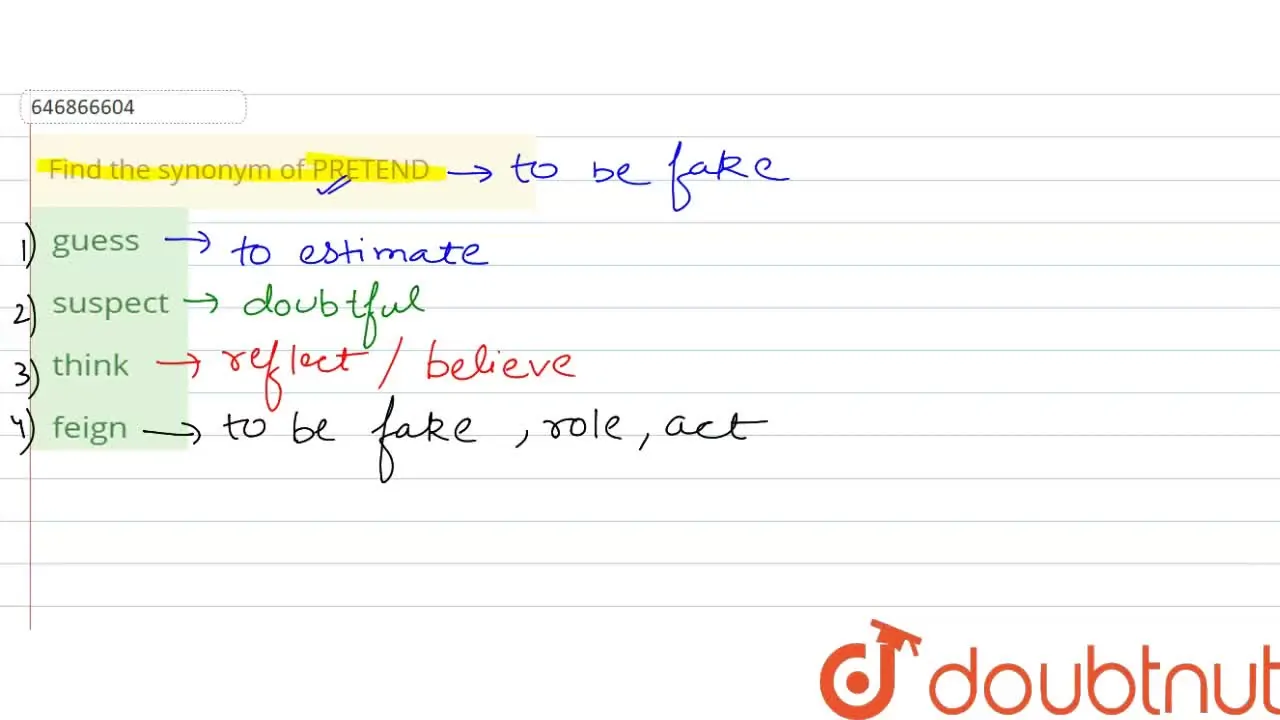 646866604
Find the synonym of PRETEND → to be fake
1) guess → to estimate
2) suspect → doubtful
3) think → reflect / believe
4) feign → to be fake, role, act
doubtnut